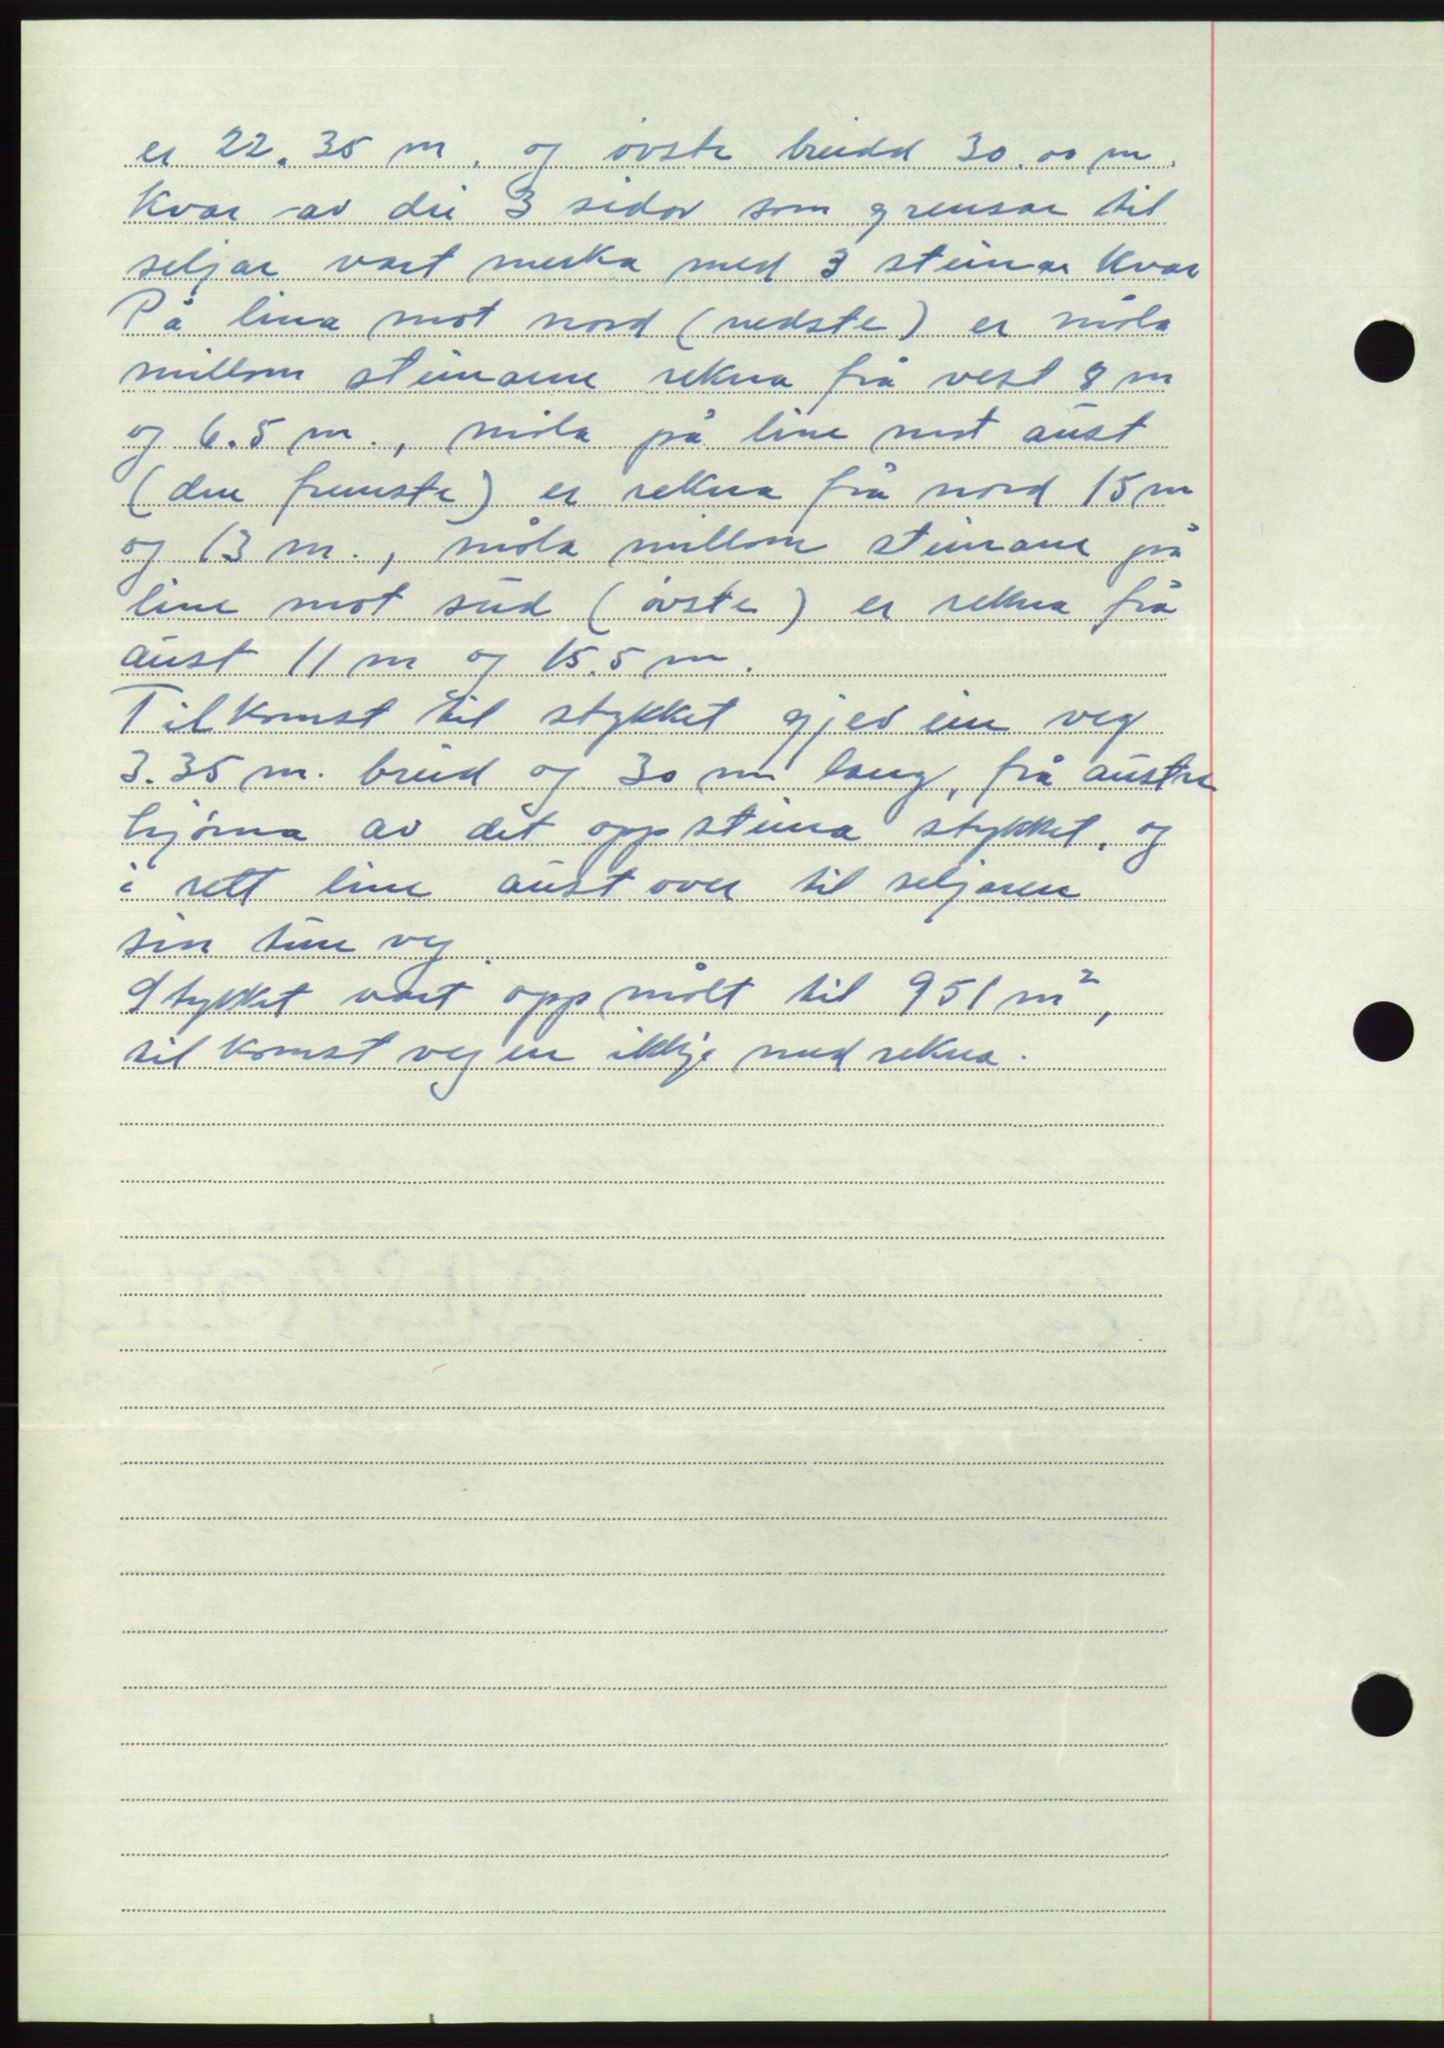 er 22.35 m. og øvste breidd 30.00 m.
Kvar av dei 3 sidor som grensar til
seljar vart merka med 3 steinar kvar
På lina mot nord (nedste) er måla
millom steinane rekna frå vest 8 m
og 6.5 m., måla på line mot aust
(den fremste) er rekna frå nord 15 m
og 13 m., måla millom steinane på
line mot sud (øvste) er rekna frå
aust 11 m og 15.5 m.
Tilkomst til stykket gjev ein veg
3.35 m. breid og 30 m lang, frå austre
hjørna av det oppsteina stykket, og
i rett line austover til seljaren
sin tun veg.
Stykket vart oppmålt til 951 m²,
tilkomstvegen ikkje medrekna.